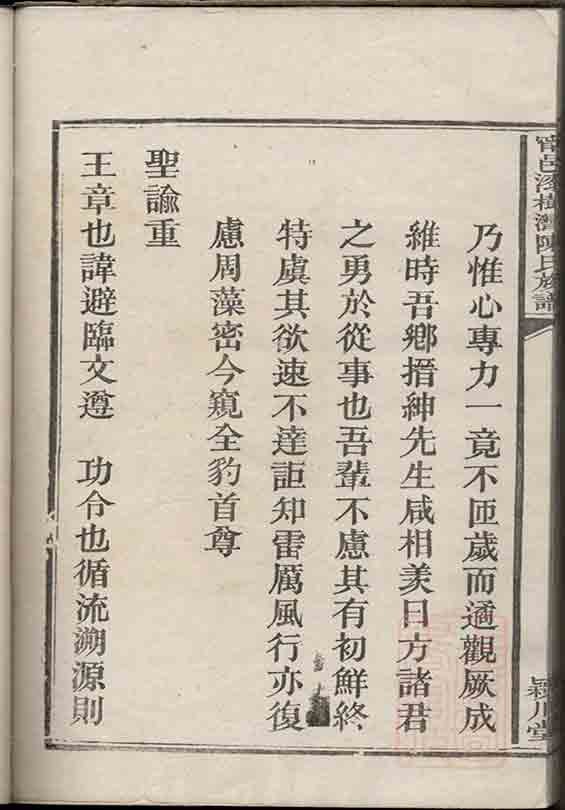 甯邑漆樹灣陳氏族譜
穎川堂
乃惟心專力一竟不匝歲而遹觀厥成
維時吾鄉搢紳先生咸相羨曰方諸君
之勇於從事也吾輩不慮其有初鮮終
特虞其欲速不達詎知雷厲風行亦復
慮周藻密今窺全豹首尊
聖諭重
王章也諱避臨文遵 功令也循流溯源則